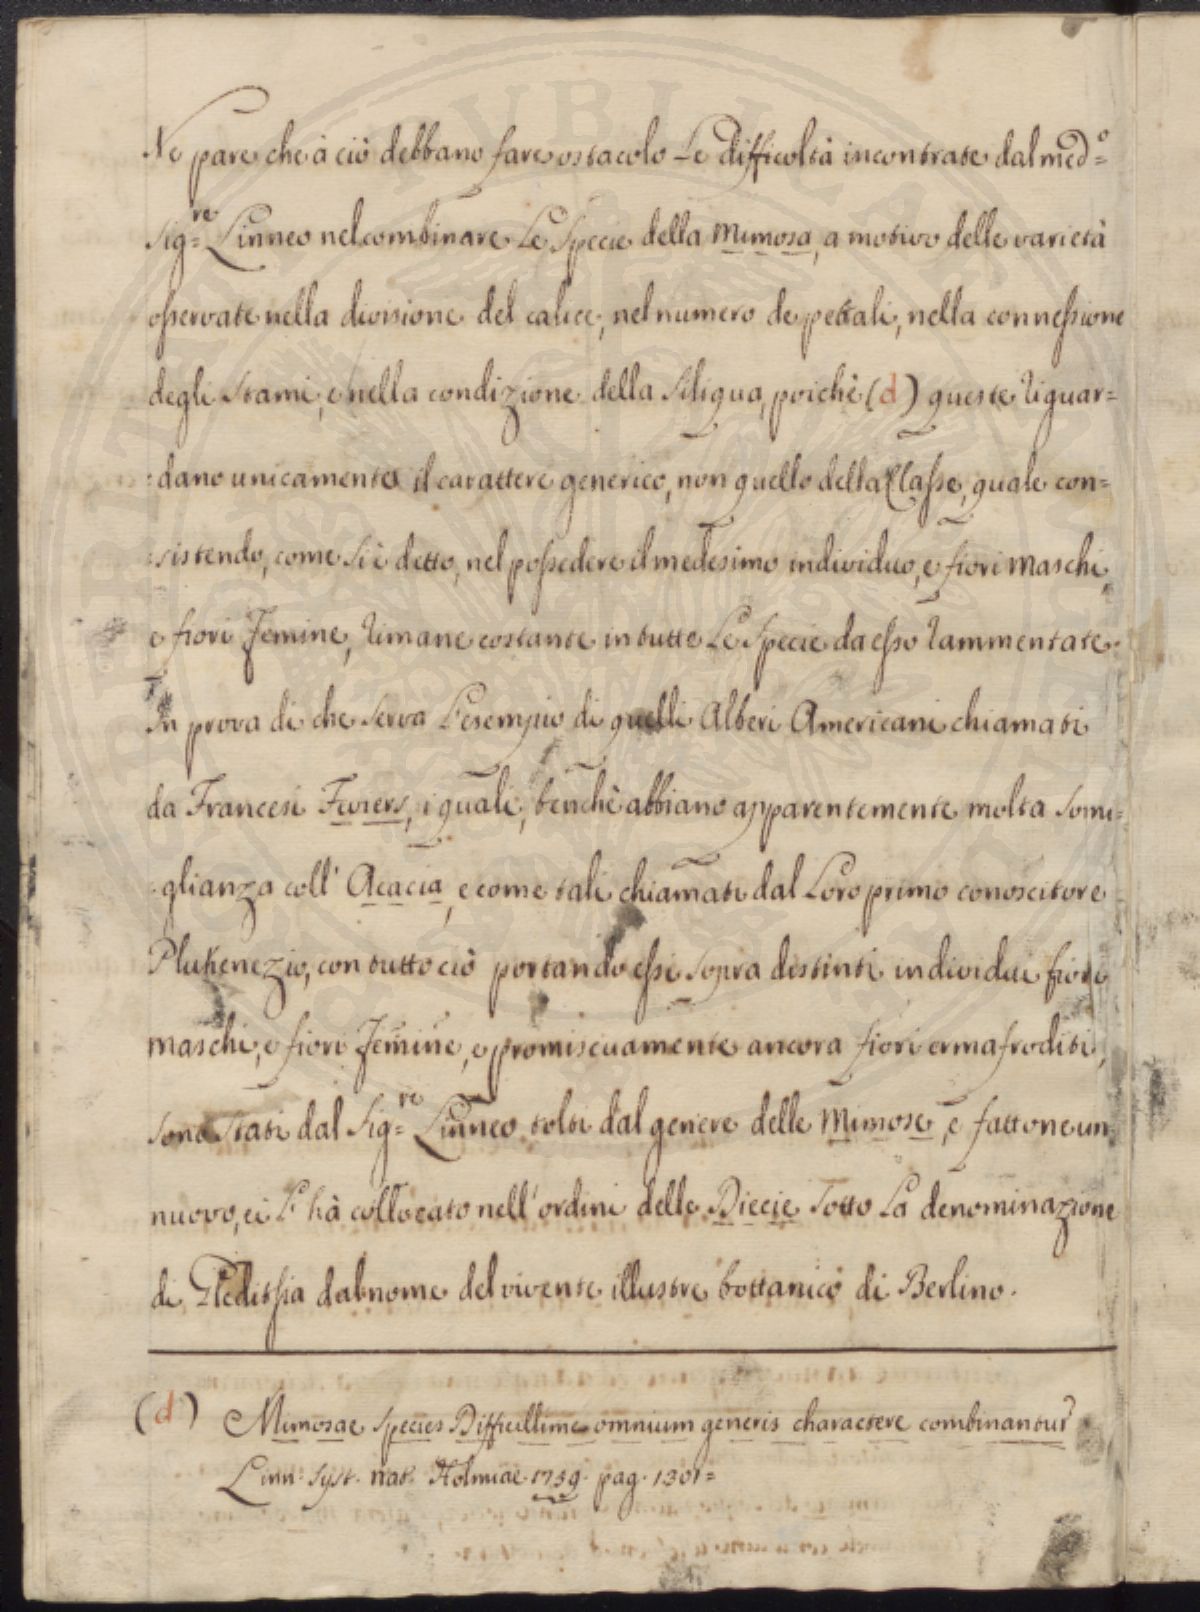 Ne pare che à ciò debbano fare ostacolo Le difficoltà incontrate dal med.º=
Sig.re= Linneo nel combinare Le Specie della Mimosa, a motivo delle varietà
osservate nella divisione del calice, nel numero de pettali, nella connessione
degli Stami, e nella condizione della Siliqua, poichè (d) queste riguar=
:dano unicamente il carattere generico, non quello della Classe, quale con=
:sistendo, come si è detto, nel possedere il medesimo individuo, e fiori maschi,
e fiori Femine, rimane costante in tutte Le Specie da esso rammentate.
In prova di che serva L'esempio di quelli Alberi Americani chiamati
da Francesi Feviers, i quali, benchè abbiano apparentemente molta Somi=
:glianza coll' Acacia, e come tali chiamati dal Loro primo conoscitore
Plukenezio, con tutto ciò portando essi sopra distinti individui fiori
maschi, e fiori Femine, e promiscuamente ancora fiori ermafroditi,
sono stati dal Sig.re= Linneo tolti dal genere delle Mimose, e fattone un
nuovo, ei L' hà collocato nell' ordini delle Diecie sotto La denominazione
di Gleditsia dal nome del vivente illustre bottanico di Berlino.
(d) Mimosae Species Difficillime omnium generis charactere combinantur
Linn. Syst. nat. Holmiae. 1759. pag. 1301=